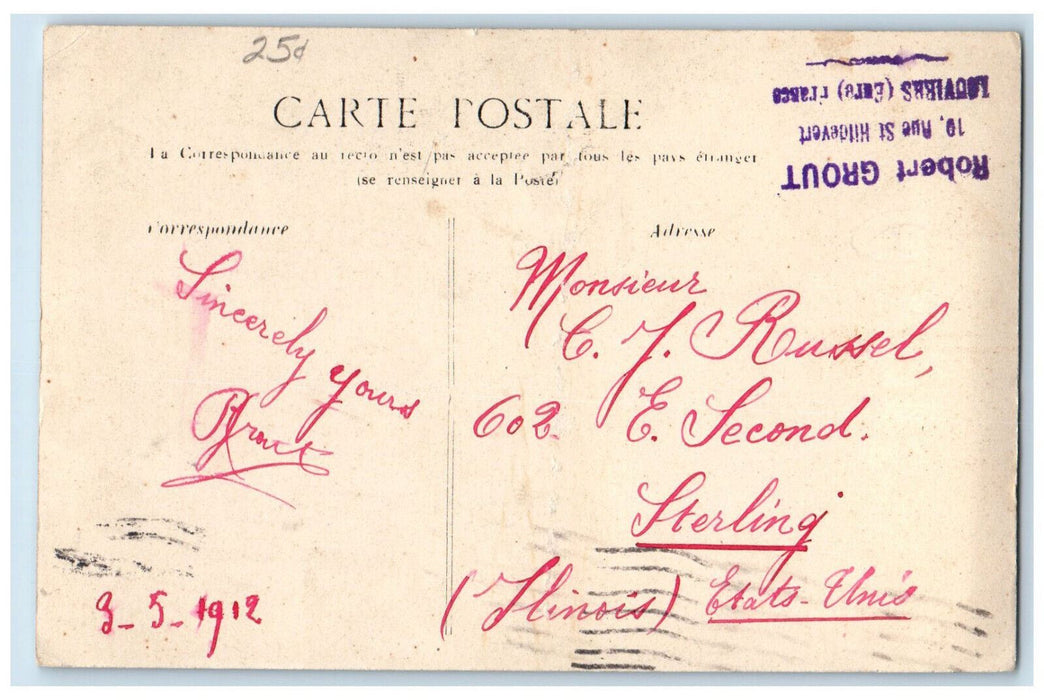 25¢
CARTE POSTALE
La Correspondance au recto n'est pas acceptée par tous les pays étranger
(se renseigner à la Poste)
Robert GROUT
19, Rue St Hildevert
LOUVIERS (Eure) France
Correspondance
Adresse
Sincerely yours
RGrout
3-5-1912
Monsieur
C. J. Russel,
602 E. Second.
Sterling
(Ilinois) Etats-Unis